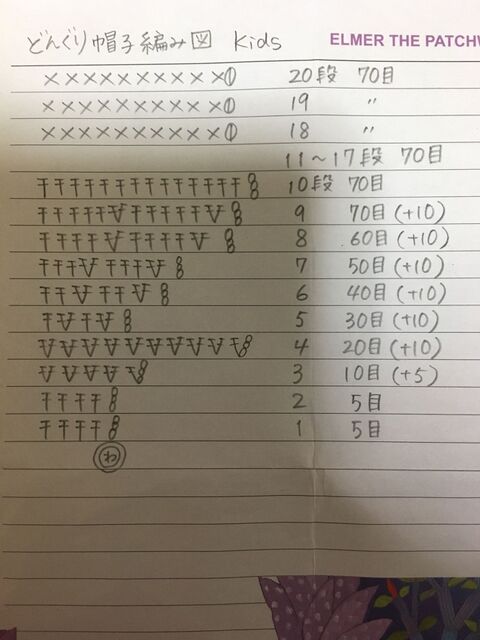 どんぐり帽子編み図 Kids ELMER THE PATCHW
××××××××××① 20段 70目
××××××××××① 19 〃
××××××××××① 18 〃
11〜17段 70目
10段 70目
9 70目(+10)
8 60目(+10)
7 50目(+10)
6 40目(+10)
5 30目(+10)
4 20目(+10)
3 10目(+5)
2 5目
1 5目
わ